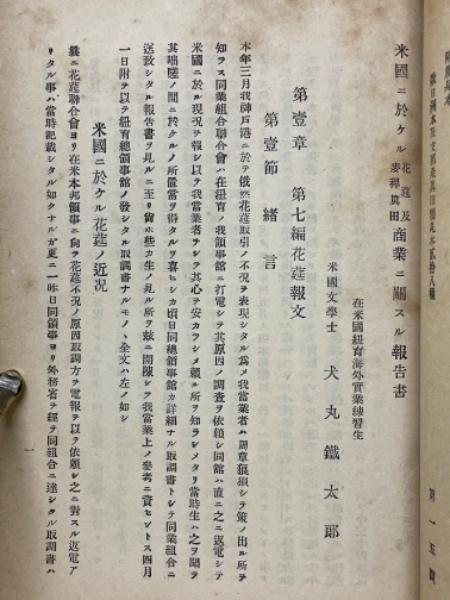 歐日洲本及支那麥眞田見本貳拾八種
第一五門
米國ニ於ケル花莚及麥稈眞田商業ニ關スル報告書
在米國紐育海外實業練習生
米國文學士 犬丸鐵太郎
第壹章 第七編花莚報文
第壹節 緒言
本年三月我神戸港ニ於テ俄然花莚取引ノ不況ヲ表現シタル爲メ我當業者ハ周章狼狽シテ策ノ出ル所ヲ
知ラス同業組合聯合會ハ在紐育ノ我領事館ニ打電シテ其原因ノ調査ヲ依頼シ同館ハ直ニ之ニ返電シテ
米國ニ於ル現況ヲ報シ以テ我當業者ヲシテ其心ヲ安カラシメ頼ル所ヲ知ラシメタリ當時生ハ之ヲ聞ラ
其咄嗟ノ間ニ於ケルノ所置當ヲ得タルヲ喜ヒシカ頃日同總領事館カ詳細ナル取調書トシテ同業組合ニ
送致シタル報告書ヲ見ルニ至リ貨ホ些カ生ノ見ル所ヲ玆ニ開陳シテ我當業上ノ參考ニ資セントス四月
一日附ヲ以テ紐育總領事館ノ發シタル取調書ナルモノヽ全文ハ左ノ如シ
米國ニ於ケル花莚ノ近況
曩ニ花莚聯合會ヨリ在米本邦領事ニ向ヲ花莚不況ノ原因取調方ヲ電報ヲ以テ依頼シ之ニ對スル返電ア
リタル事ハ當時記載シタル如クナルガ更ニ一昨日同領事ヨリ外務省ヲ經テ同組合ニ達シタル取調書ハ
一